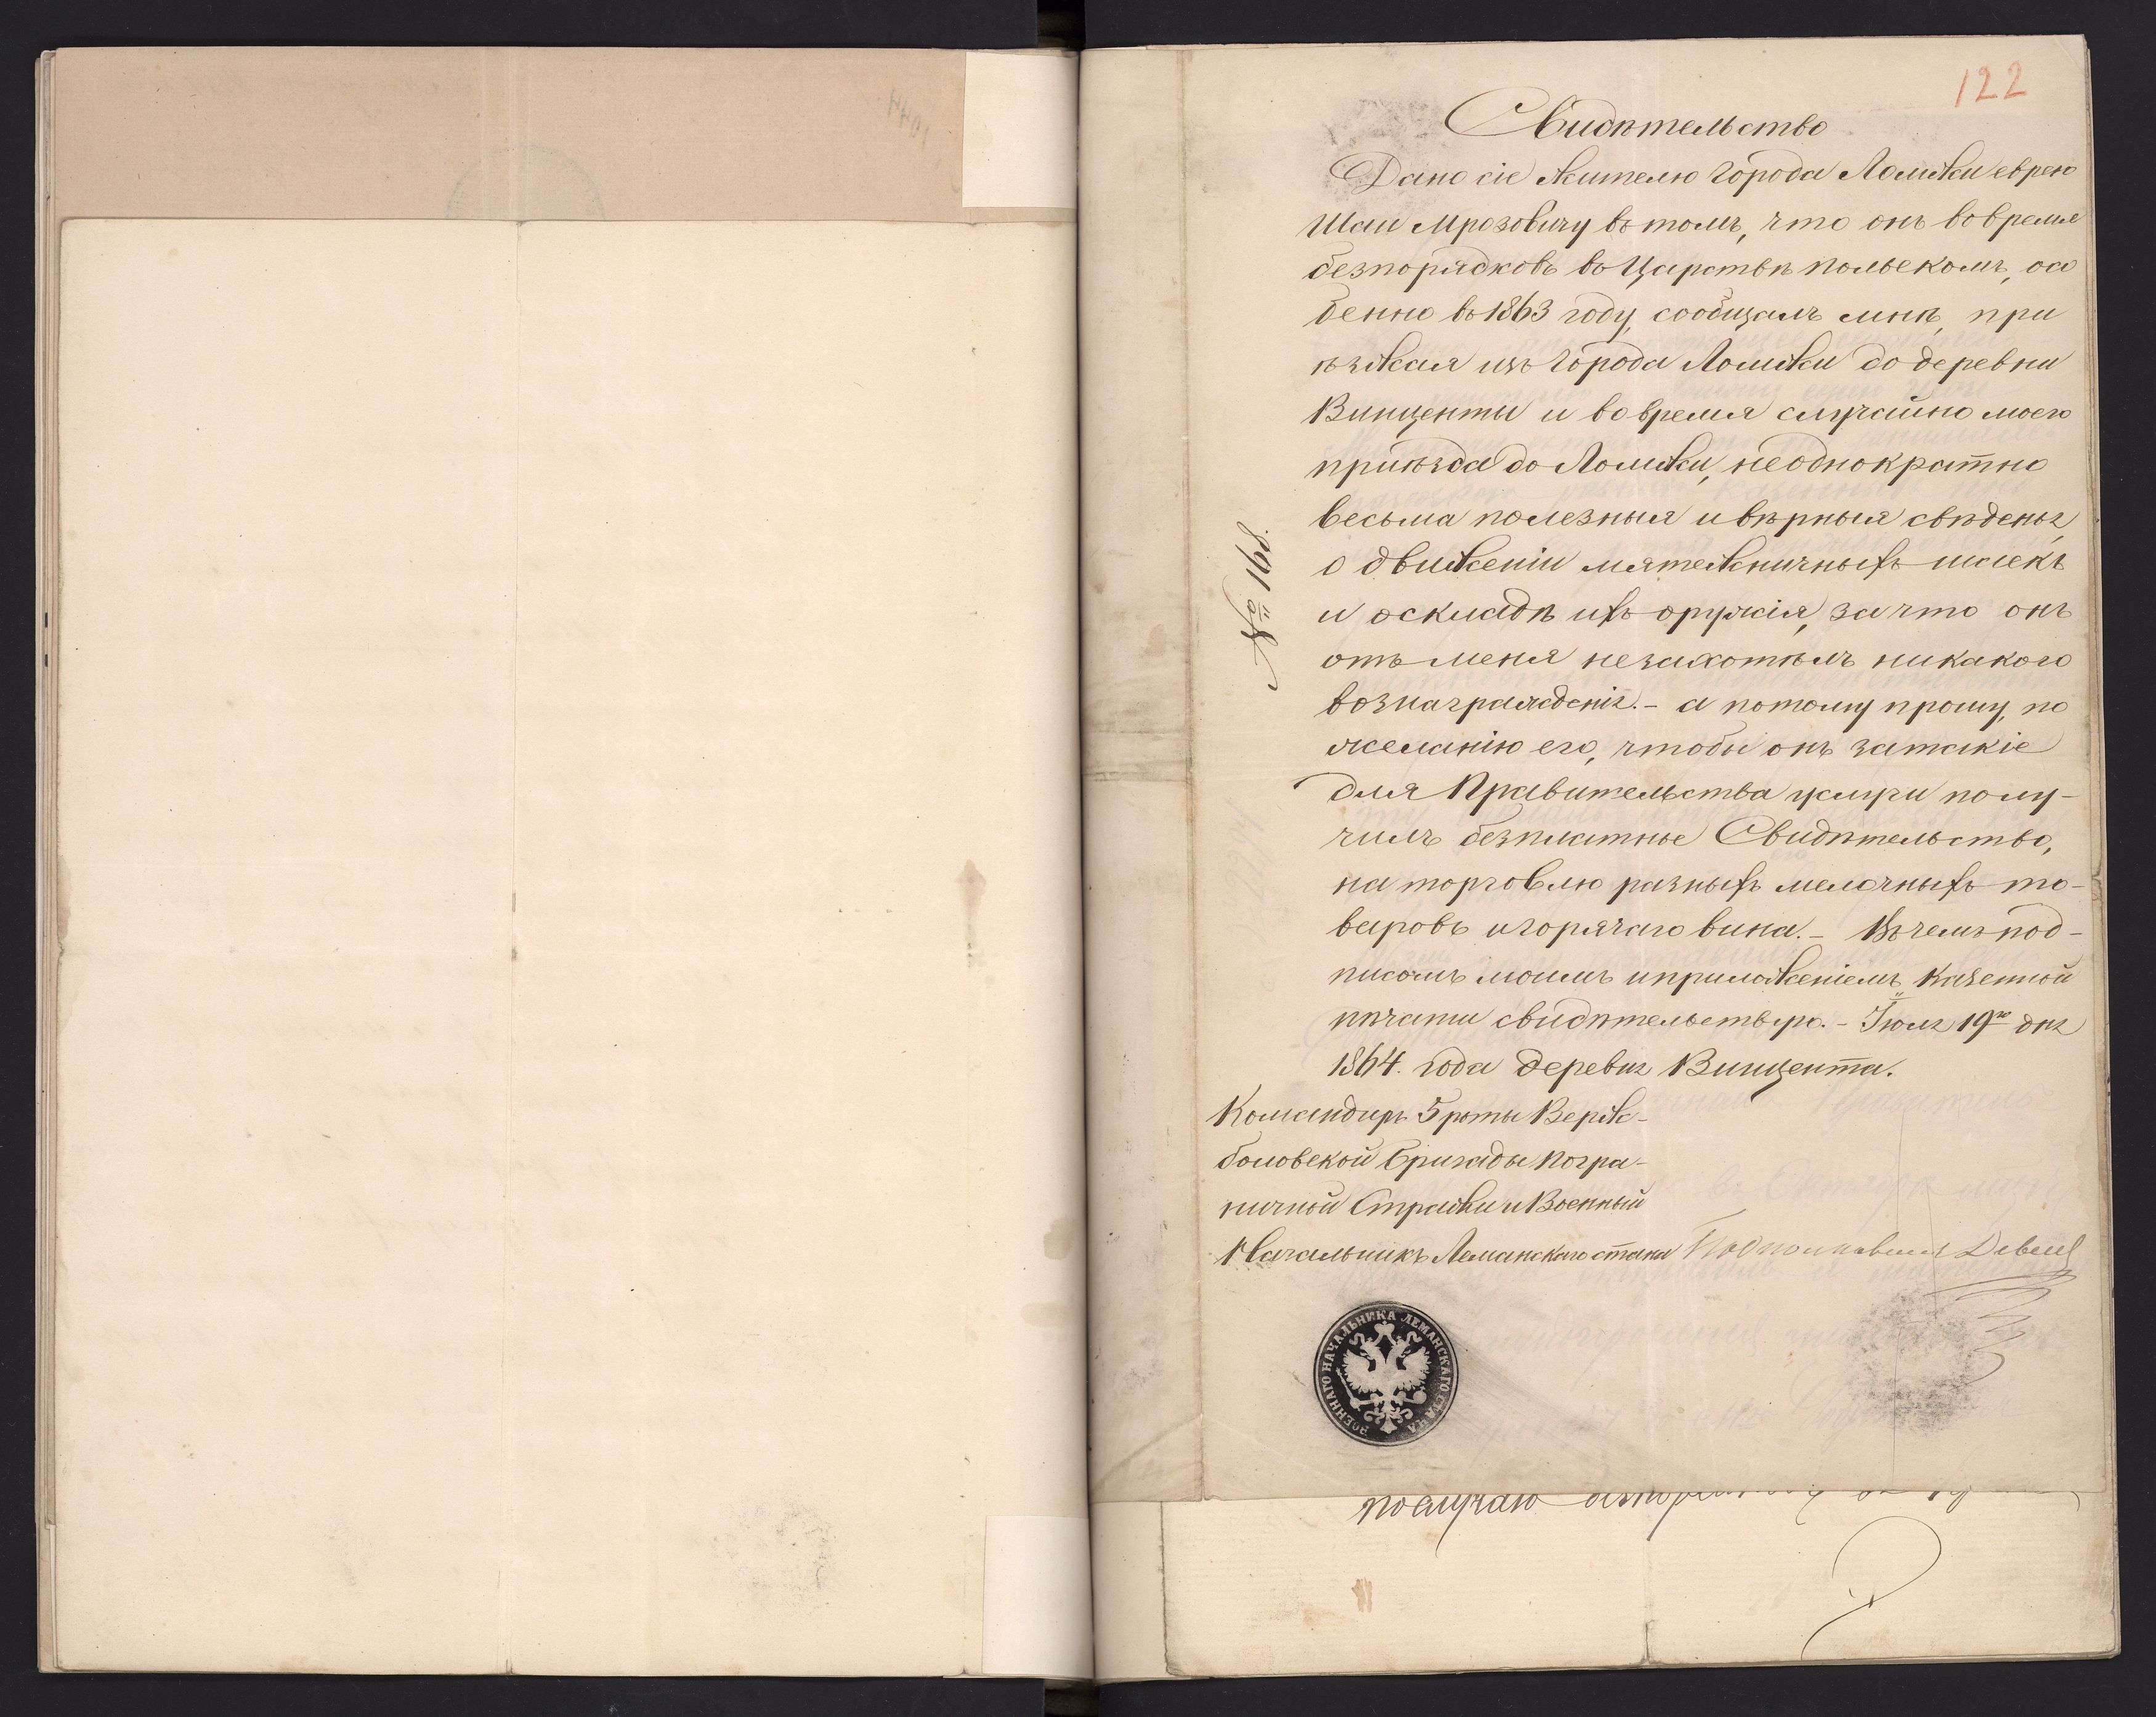 122
Свидѣтельство
Дано сіе жителю города Ломжи еврею
Шаи Мрозовичу въ томъ, что онъ во время
безпорядковъ въ Царствѣ Польскомъ, осо
бенно въ 1863 году, сообщалъ мнѣ, при
ѣзжая изъ города Ломжи до деревни
Винценты и во время случайно моего
приѣзда до Ломжи, неоднократно
весьма полезныя и вѣрныя свѣденья,
о движеніи мятежничныхъ шаекъ
и о складѣ ихъ оружія, за что онъ
отъ меня незахотѣлъ никакого
вознагражденія. - а потому прошу, по
желанію его, чтобы онъ за такіе
для Правительства услуги полу-
чилъ безплатное Свидѣтельство,
на торговлю разныхъ мелочныхъ то-
варовъ и горячаго вина. - Въ чемъ под-
писомъ моимъ и приложеніемъ казенной
пѣчати свидѣтельствую. - Іюля 19го дня
1864. года деревня Винцента.
№ 168.
Командиръ 5 роты Верж-
боловской бригады Погра-
ничной Стражи и Военный
Начальникъ Леманскаго стана Подполковникъ
ВОЕННАГО НАЧАЛЬНИКА ЛЕМАНСКАГО СТАНА
по случаю